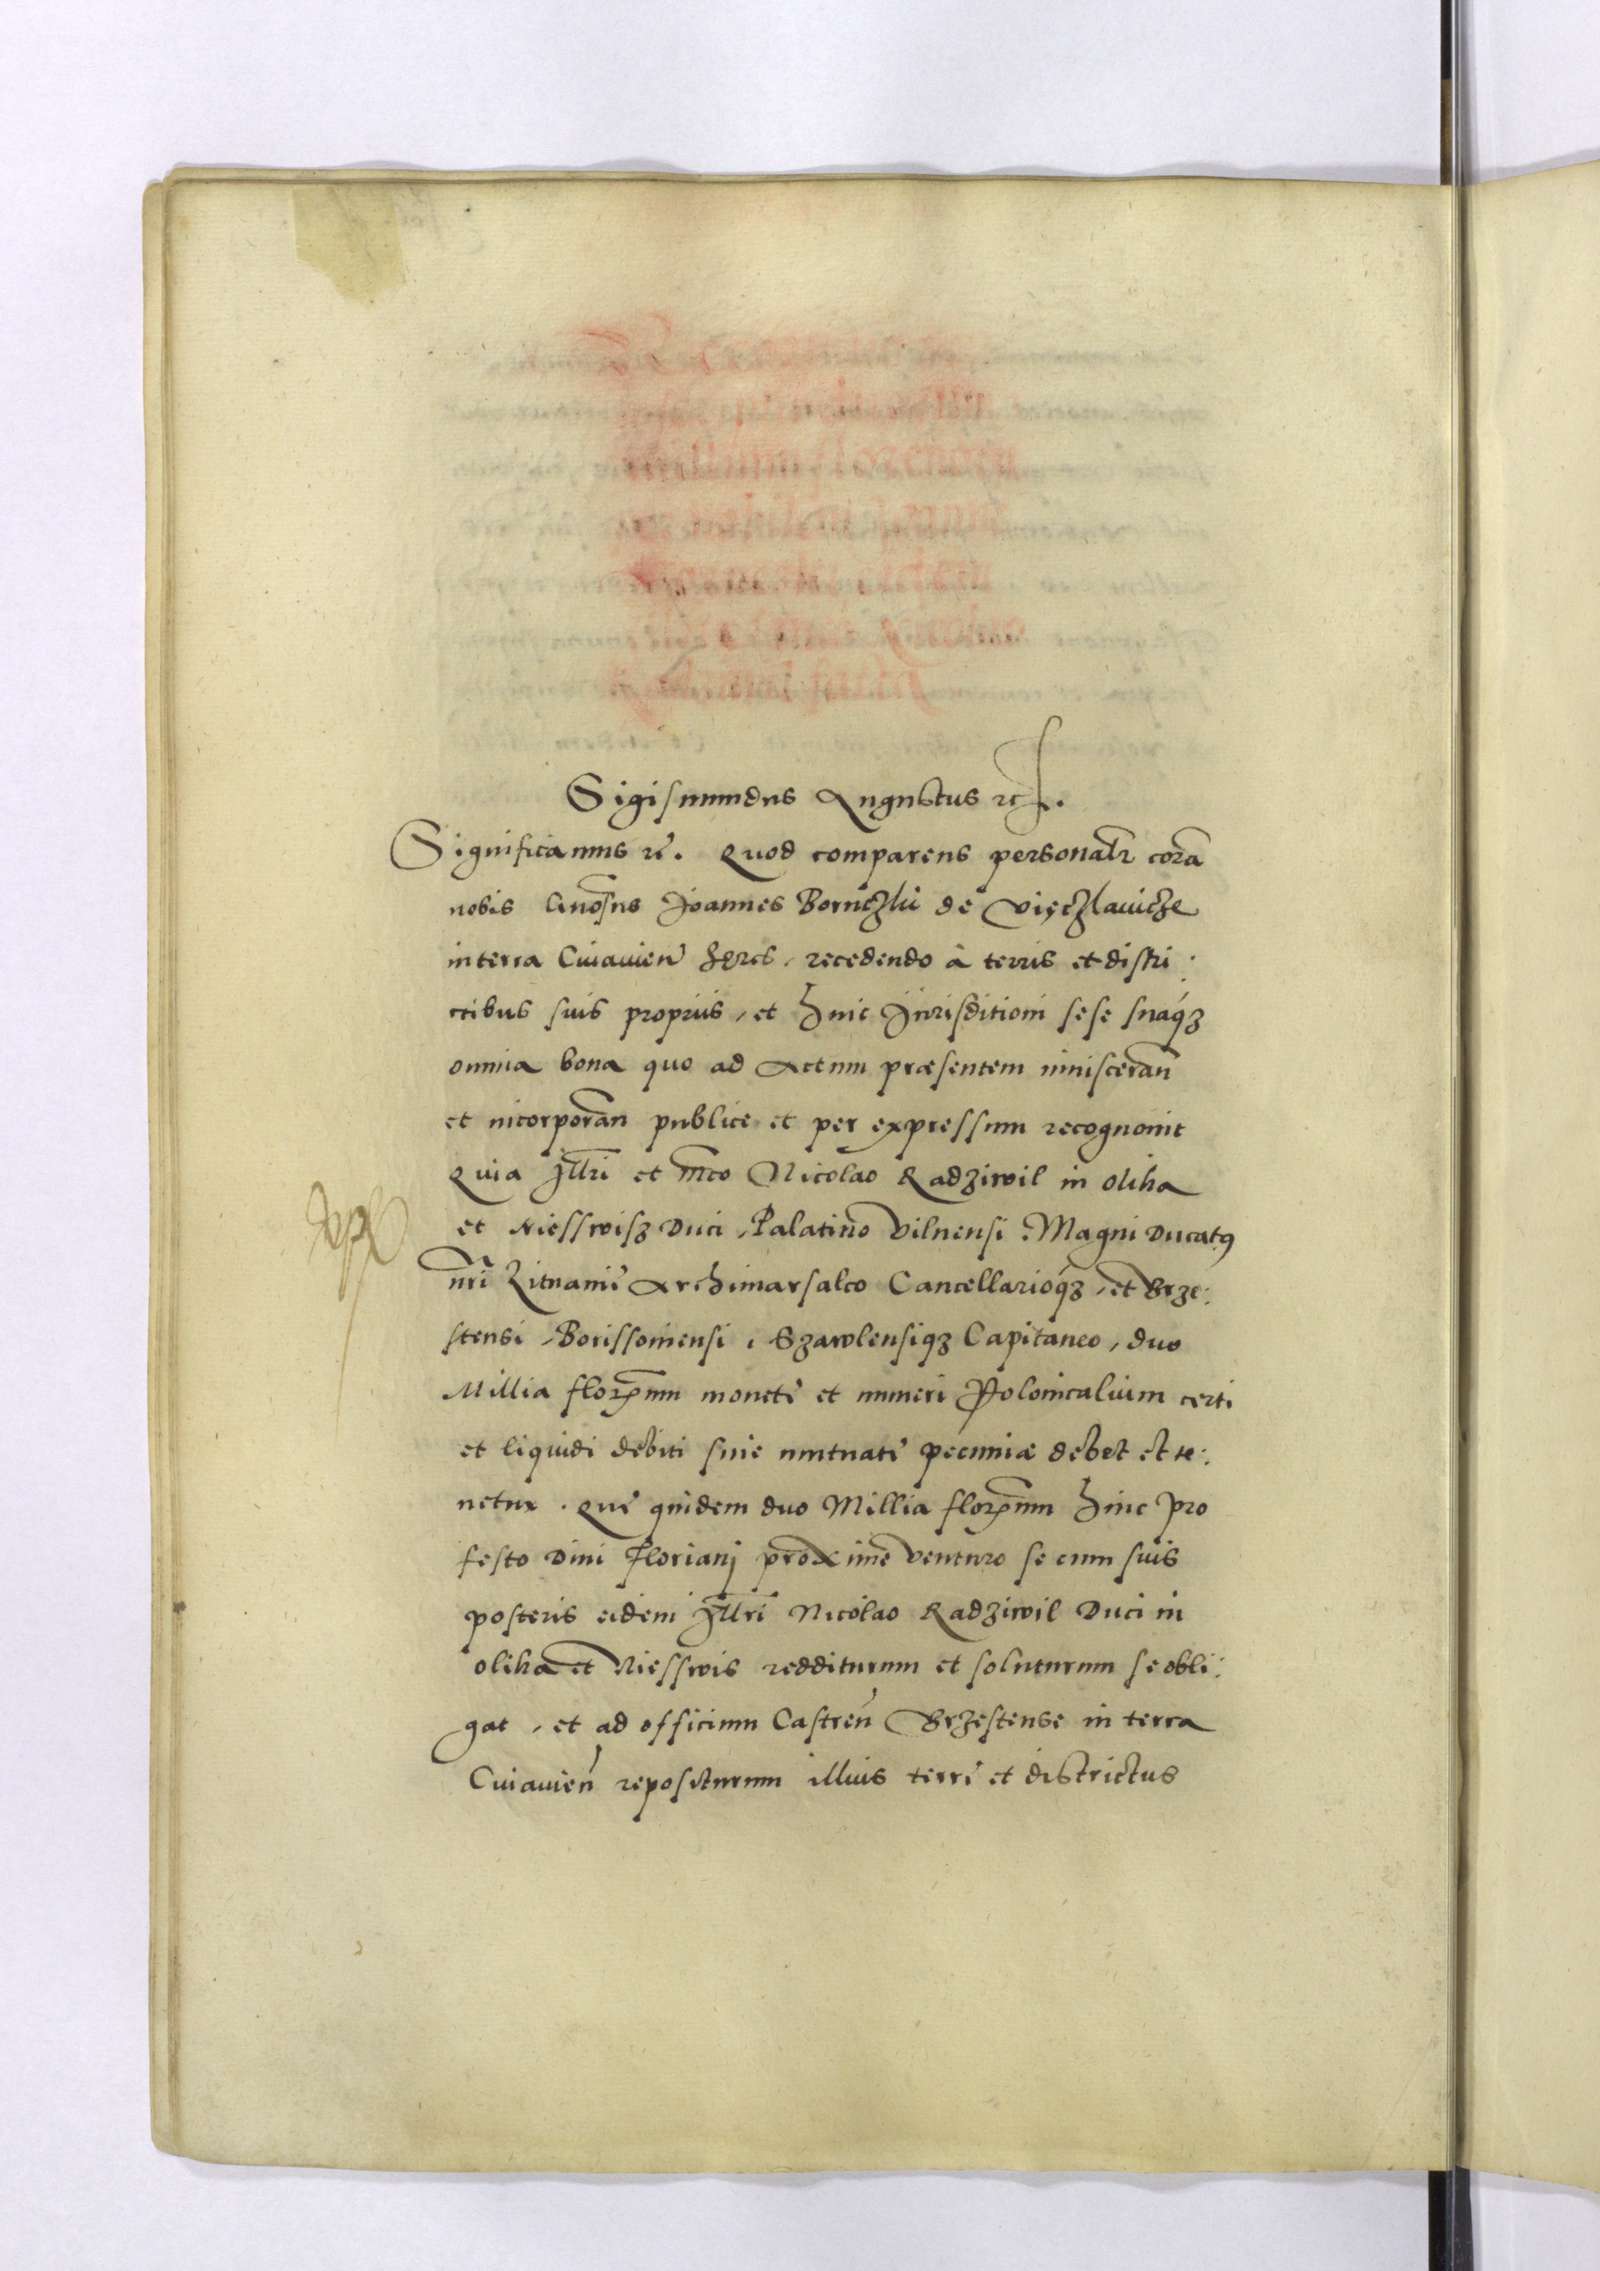 Sigismundus Augustus etc.
Significamus etc. Quod comparens personalr corã
nobis Gnosus Joannes Bornczki de Vięczlawicze
in terra Cuiavieñ heres, recedendo à terris et distri:
ctibus suis propriis, et huic Jurisditioni sese suaq3
omnia bona quo ad actum præsentem inviscerañ
et incorporañ publice et per expressum recognovit
Quia Jllri et mco Nicolao Radziwil in Olika
et Niesswisz Duci, Palatino Vilnensi, Magni Ducatus
nri Litvaniẽ Archimarsalco Cancellarioq3, et Brze:
stensi, Borissoviensi, Szawlensiq3 Capitaneo, duo
Millia florenum monetẽ et numeri Polonicalium certi
et liquidi debiti sive mutuatẽ pecuniæ debet et te:
netur. Quẽ quidem duo Millia florenum hinc pro
festo Divi Floriani proxime venturo se cum suis
posteris eidem Jllri Nicolao Radziwil Duci in
Olika et Niesswis redditurum et soluturum se obli:
gat, et ad officium Castreñ Brzestense in terra
Cuiavieñ repositurum illius terrẽ et districtus